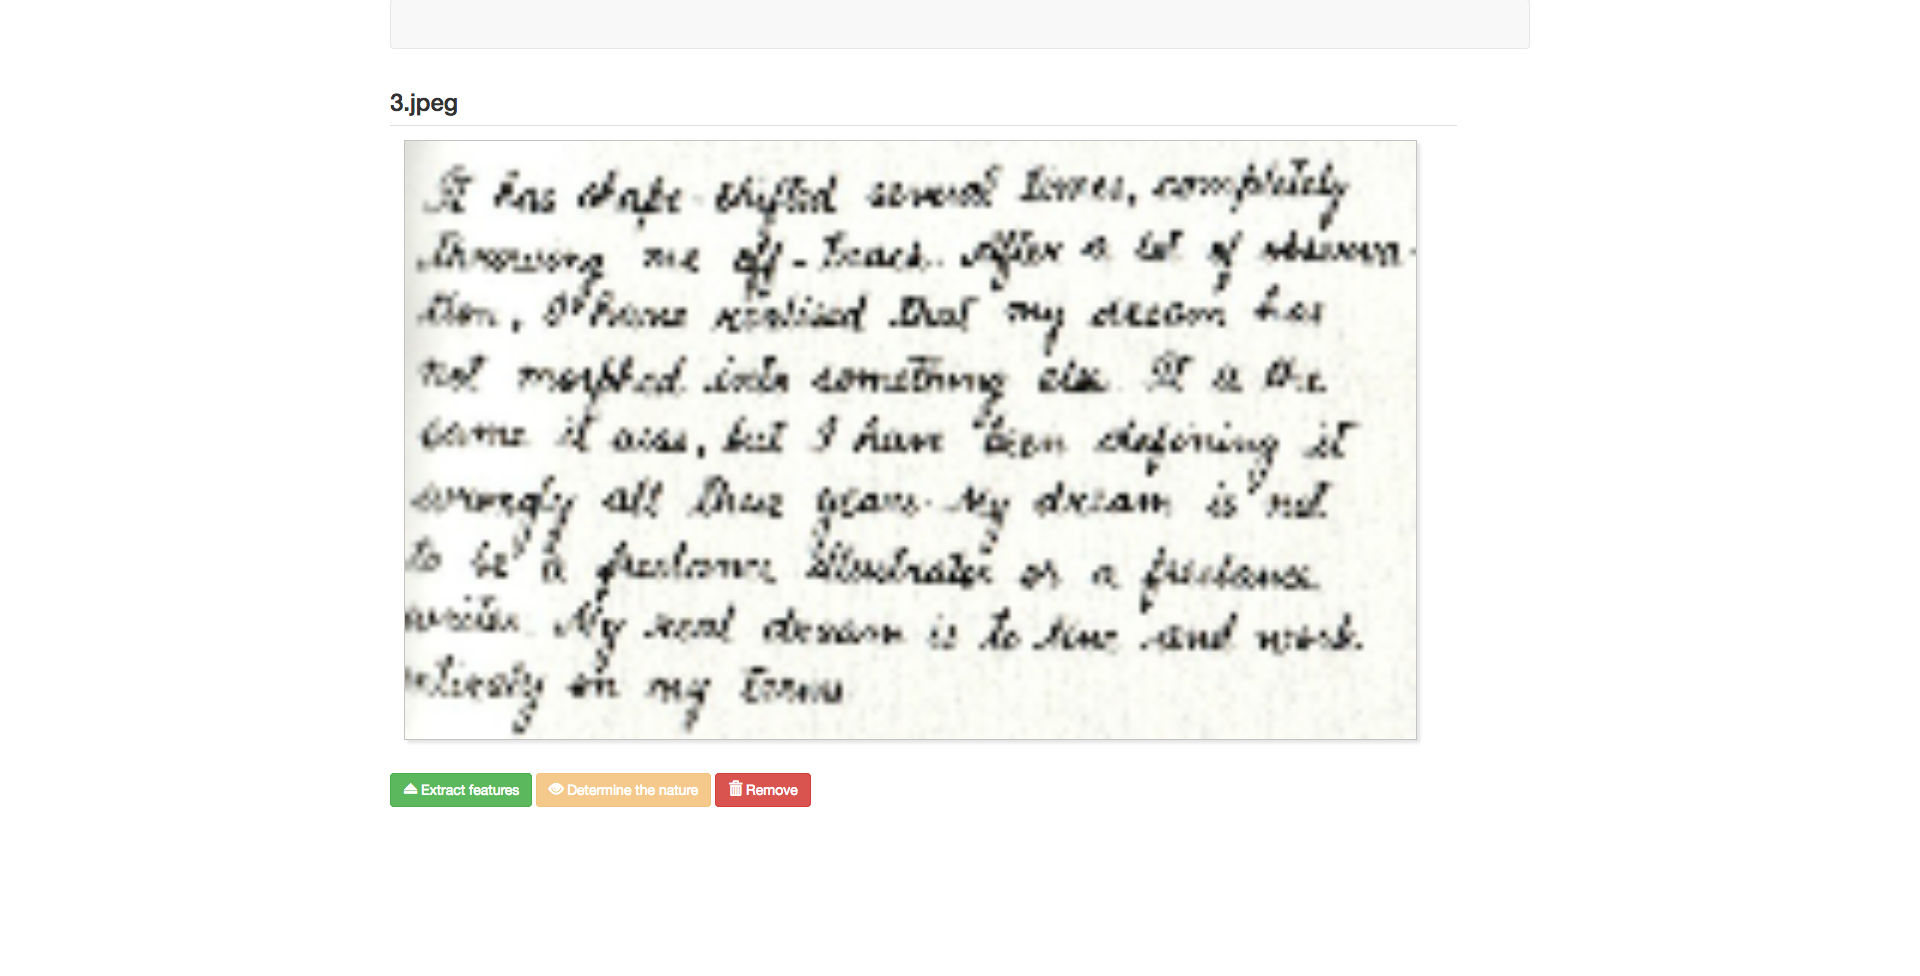 3.jpeg
It has shape-shifted several times, completely
throwing me off-track. After a lot of observa-
tion, I have realised that my dream has
not morphed into something else. It is the
same it was, but I have been defining it
wrongly all these years. My dream is not
to be a freelance illustrator or a freelance
writer. My real dream is to live and work
entirely on my terms
Extract features Determine the nature Remove